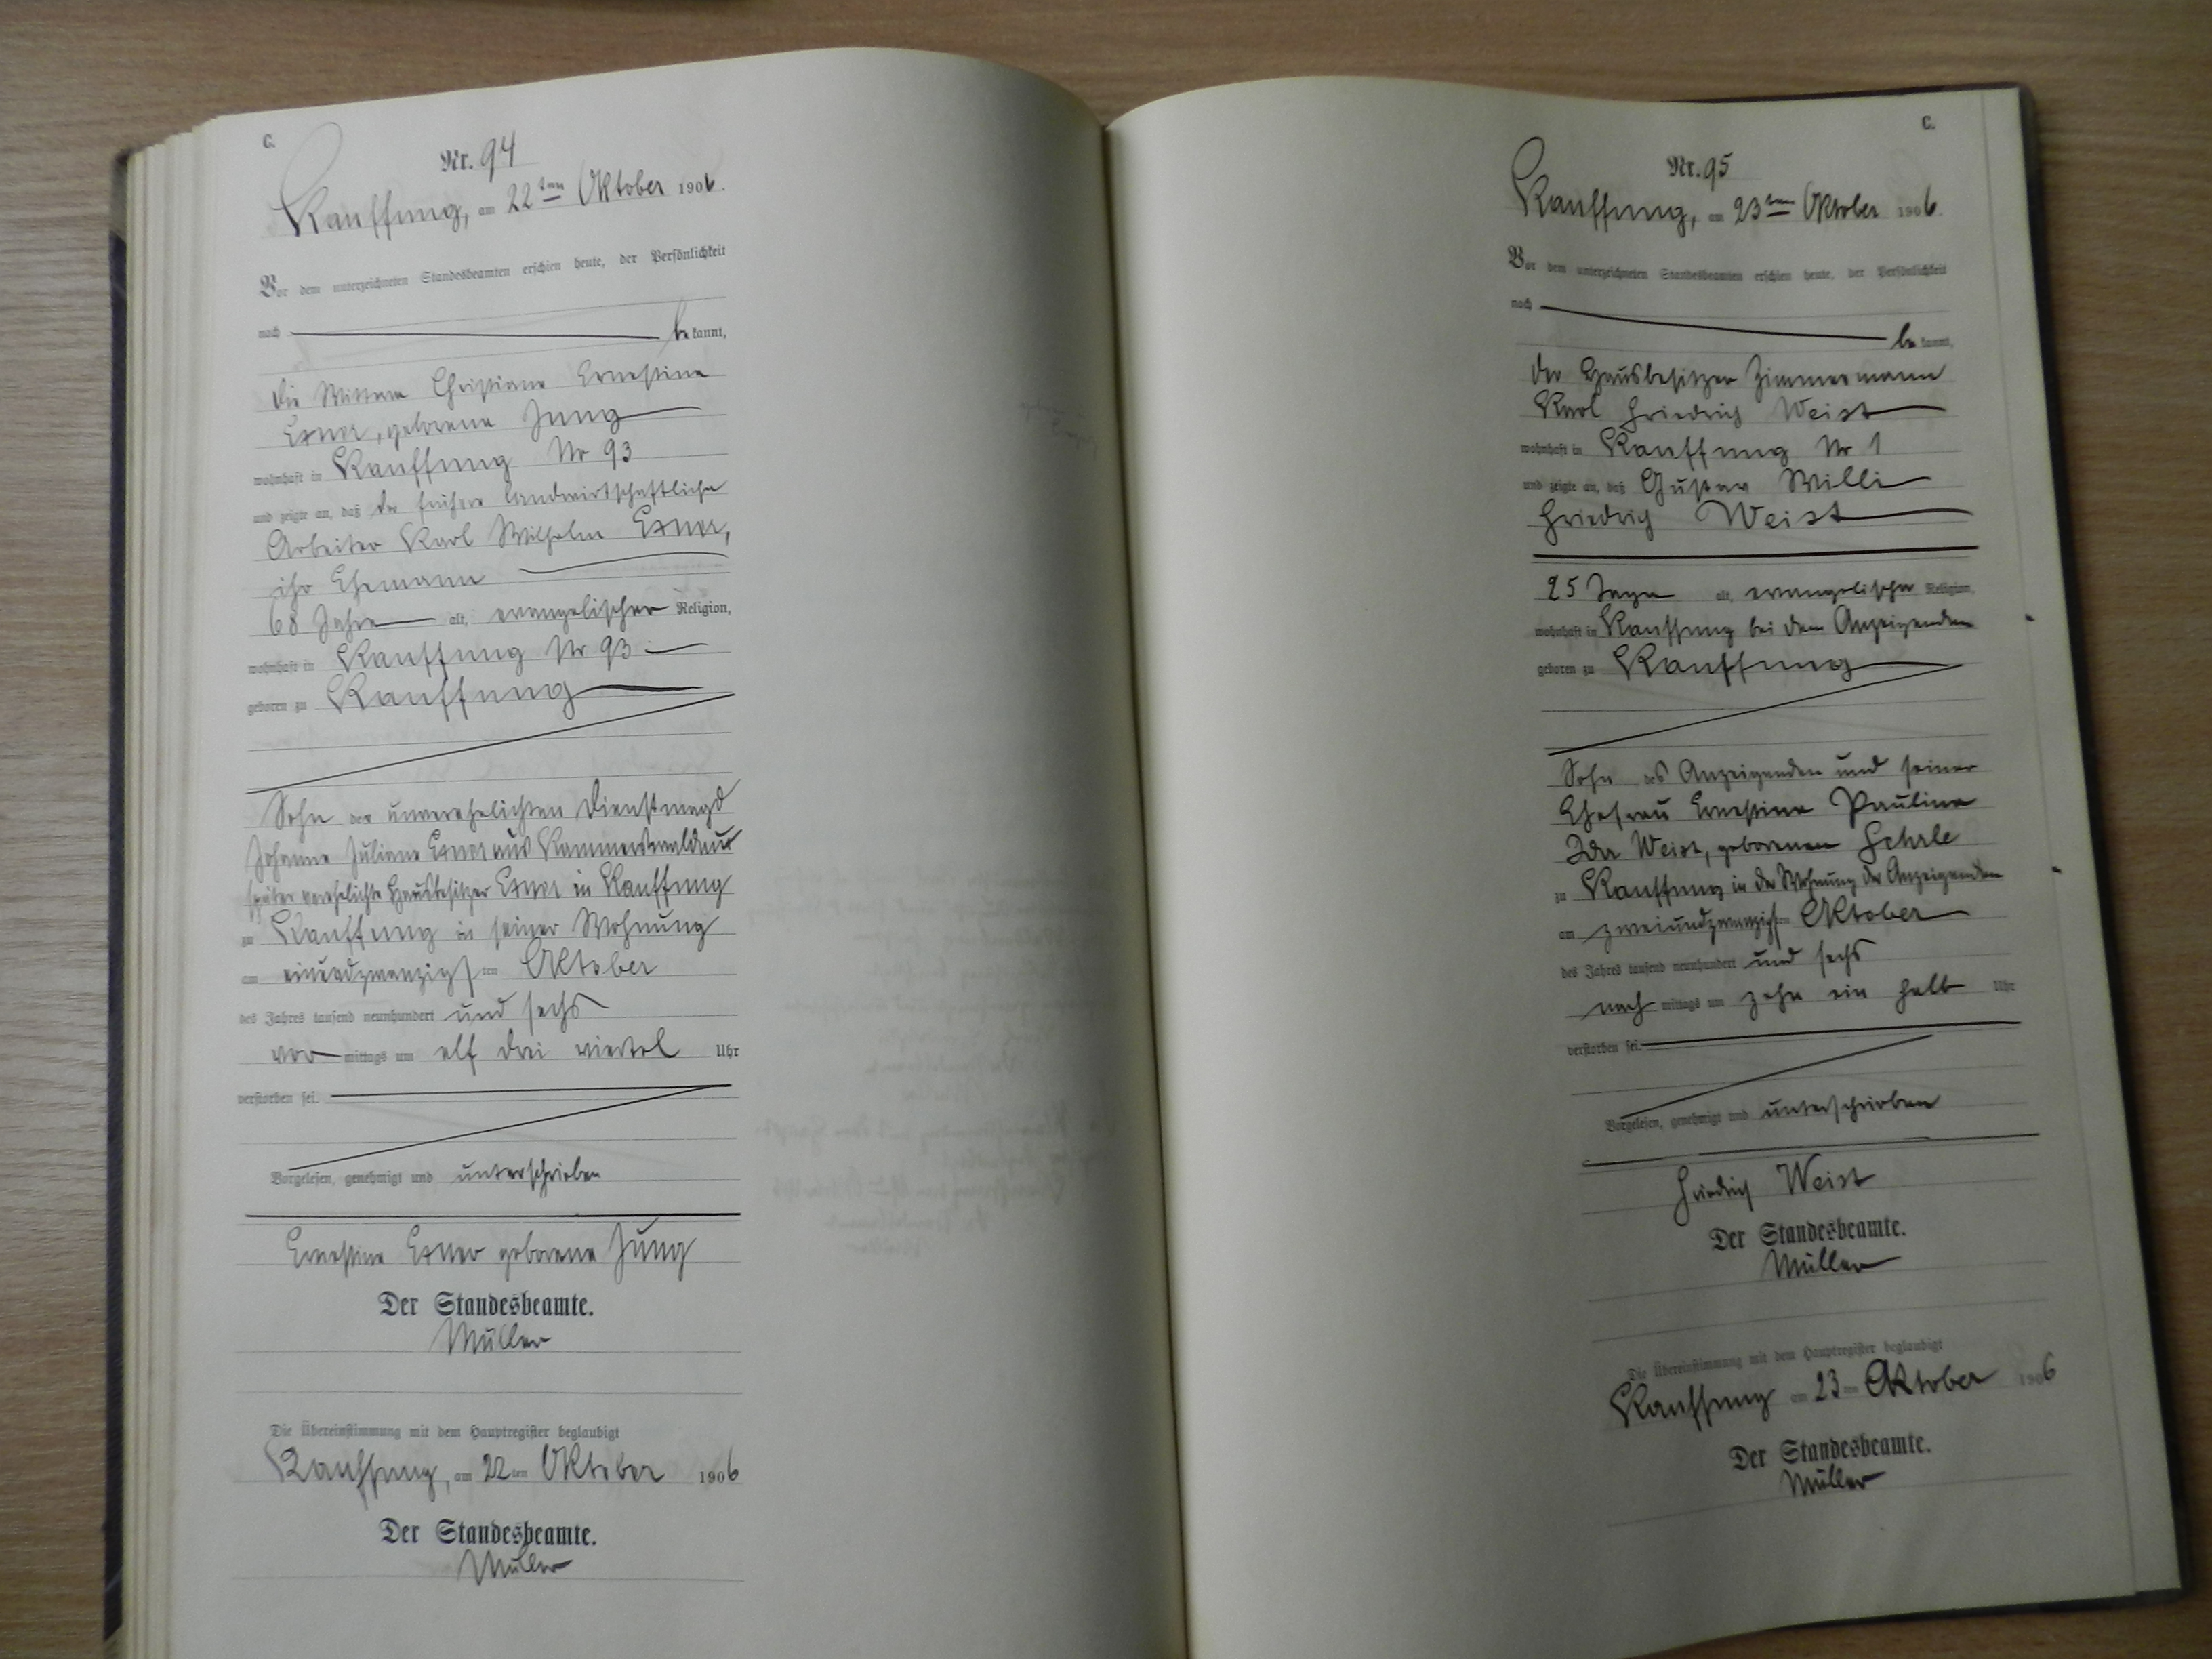 C.
Nr. 94
Kauffung, am 22ten Oktober 1906.
Vor dem unterzeichneten Standesbeamten erschien heute, der Persönlichkeit
nach
bekannt,
die Wittwe Christiane Ernestine
Exner, geborene Jung
wohnhaft in Kauffung Nr 93
und zeigte an, daß der frühere landwirtschaftliche
Arbeiter Karl Wilhelm Exner,
ihr Ehemann
68 Jahre alt, evangelischer Religion,
wohnhaft in Kauffung Nr 93
geboren zu Kauffung
Sohn der unverehelichten Dienstmagd
Johanne Juliane Exner aus Kammerswaldau
später verehelichte Hausbesitzer Exner in Kauffung
zu Kauffung in seiner Wohnung
am einundzwanzigsten Oktober
des Jahres tausend neunhundert und sechs
vormittags um elf drei viertel Uhr
verstorben sei.
Vorgelesen, genehmigt und unterschrieben
Ernestine Exner geborene Jung
Der Standesbeamte.
Müller
Die Übereinstimmung mit dem Hauptregister beglaubigt
Kauffung, am 22ten Oktober 1906
Der Standesbeamte.
Müller
C.
Nr. 95
Kauffung, am 23ten Oktober 1906.
Vor dem unterzeichneten Standesbeamten erschien heute, der Persönlichkeit
nach
bekannt,
der Hausbesitzer Zimmermann
Karl Friedrich Weist
wohnhaft in Kauffung Nr 1
und zeigte an, daß Gustav Willi
Friedrich Weist
25 Tage alt, evangelischer Religion,
wohnhaft in Kauffung bei dem Anzeigenden
geboren zu Kauffung
Sohn des Anzeigenden und seiner
Ehefrau Ernestine Pauline
Ida Weist, geborenen
zu Kauffung in der Wohnung des Anzeigenden
am zweiundzwanzigsten Oktober
des Jahres tausend neunhundert und sechs
nachmittags um zehn ein halb Uhr
verstorben sei.
Vorgelesen, genehmigt und unterschrieben
Friedrich Weist
Der Standesbeamte.
Müller
Die Übereinstimmung mit dem Hauptregister beglaubigt
Kauffung am 23ten Oktober 1906
Der Standesbeamte.
Müller